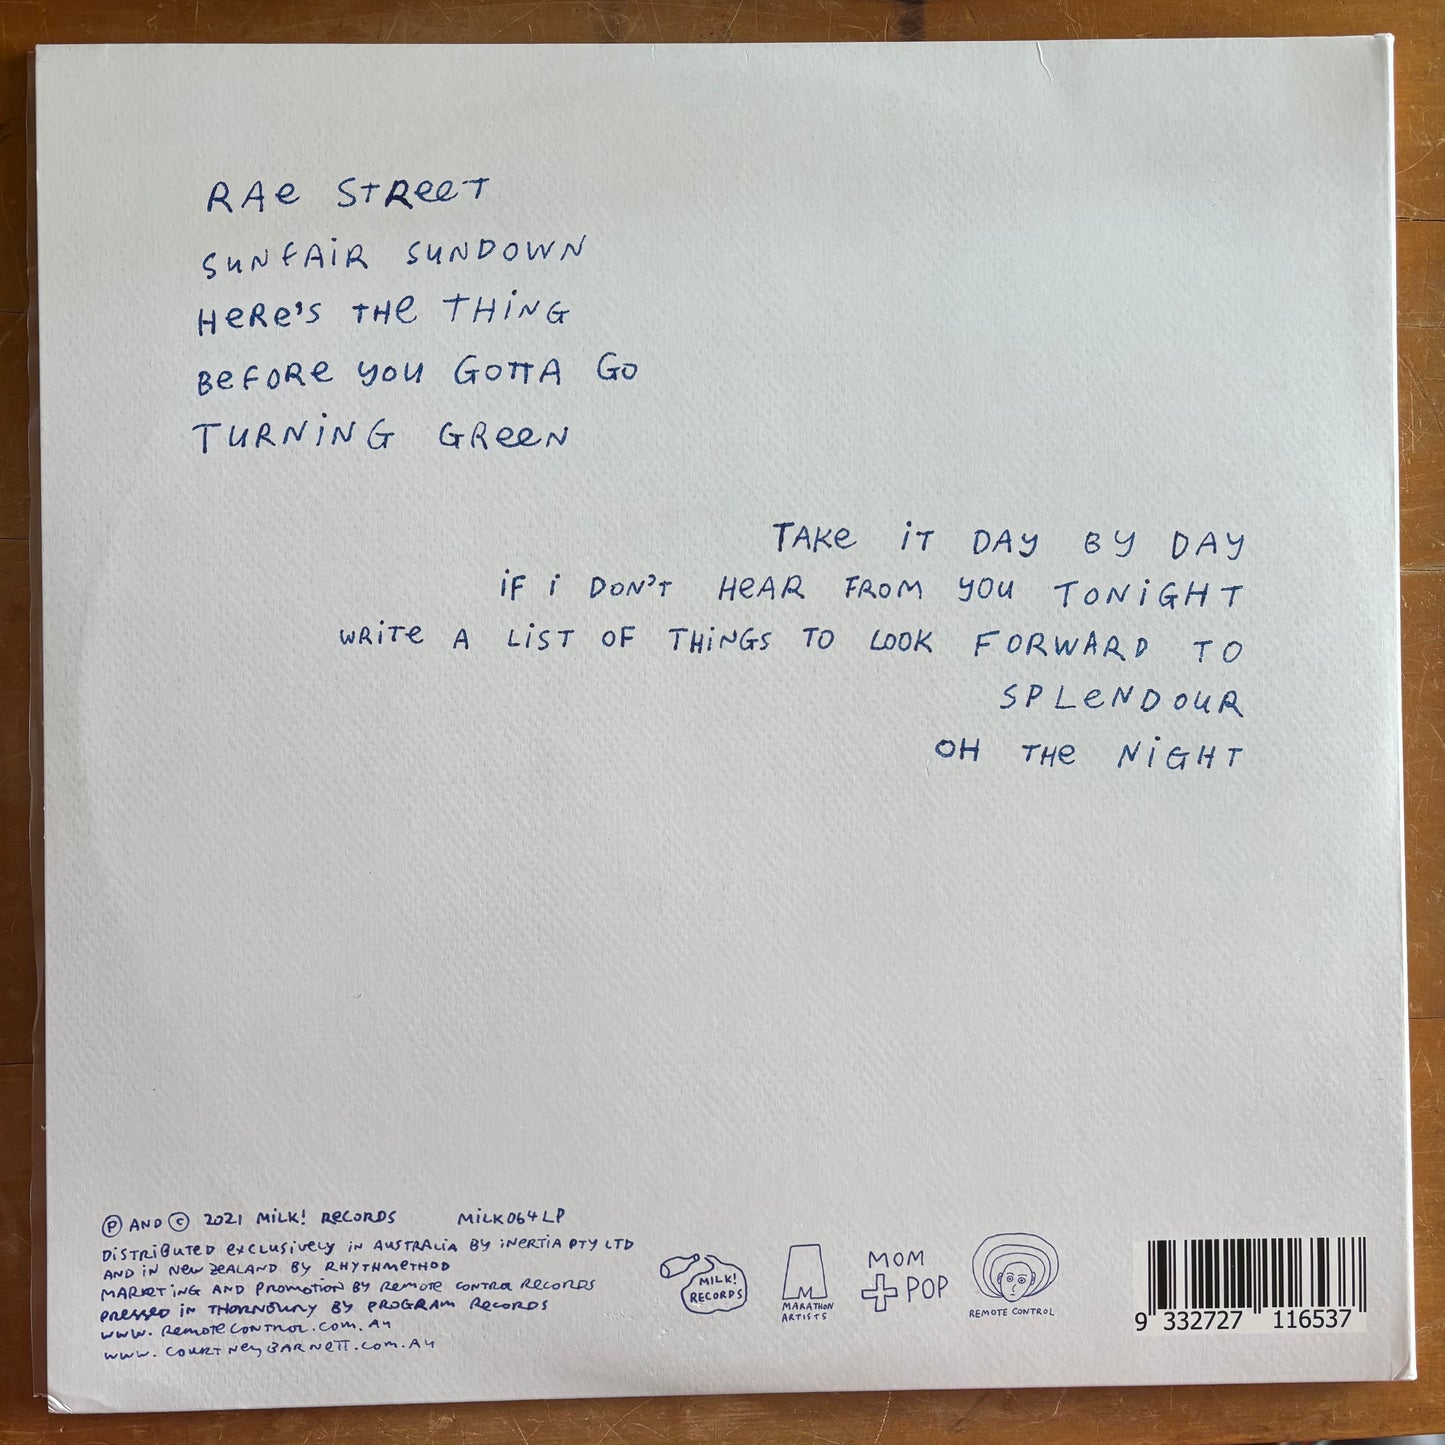 RAe STReeT
SUNFAiR SUNDOWN
HeRe'S THe THiNG
BeFORe YOU GOTTA GO
TURNiNG GReeN
TAKe iT DAY BY DAY
iF i DON'T HeAR FROM YOU TONiGHT
WRiTe A LiST OF THiNGS TO LOOK FORWARD TO
SPLeNDOUR
OH THe NiGHT
Ⓟ AND © 2021 MiLK! ReCORDS MiLK064LP
DiSTRiBUTeD eXCLUSiVeLY iN AUSTRALiA BY iNeRTiA PTY LTD
AND iN NeW ZeALAND BY RHYTHMeTHOD
MARKeTiNG AND PROMOTiON BY ReMOTe CONTROL ReCORDS
PReSSeD iN THORNBURY BY PROGRAM ReCORDS
WWW.ReMOTeCONTROL.COM.AU
WWW.COURTNeYBARNeTT.COM.AU
MiLK!
ReCORDS
M
MARATHON
ARTiSTS
MOM
+ POP
ReMOTe CONTROL
9 332727 116537